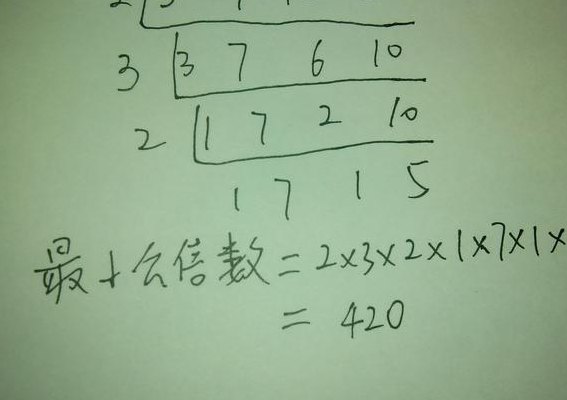 3 3 7 6 10
2 1 7 2 10
1 7 1 5
最小公倍数=2×3×2×1×7×1×
=420